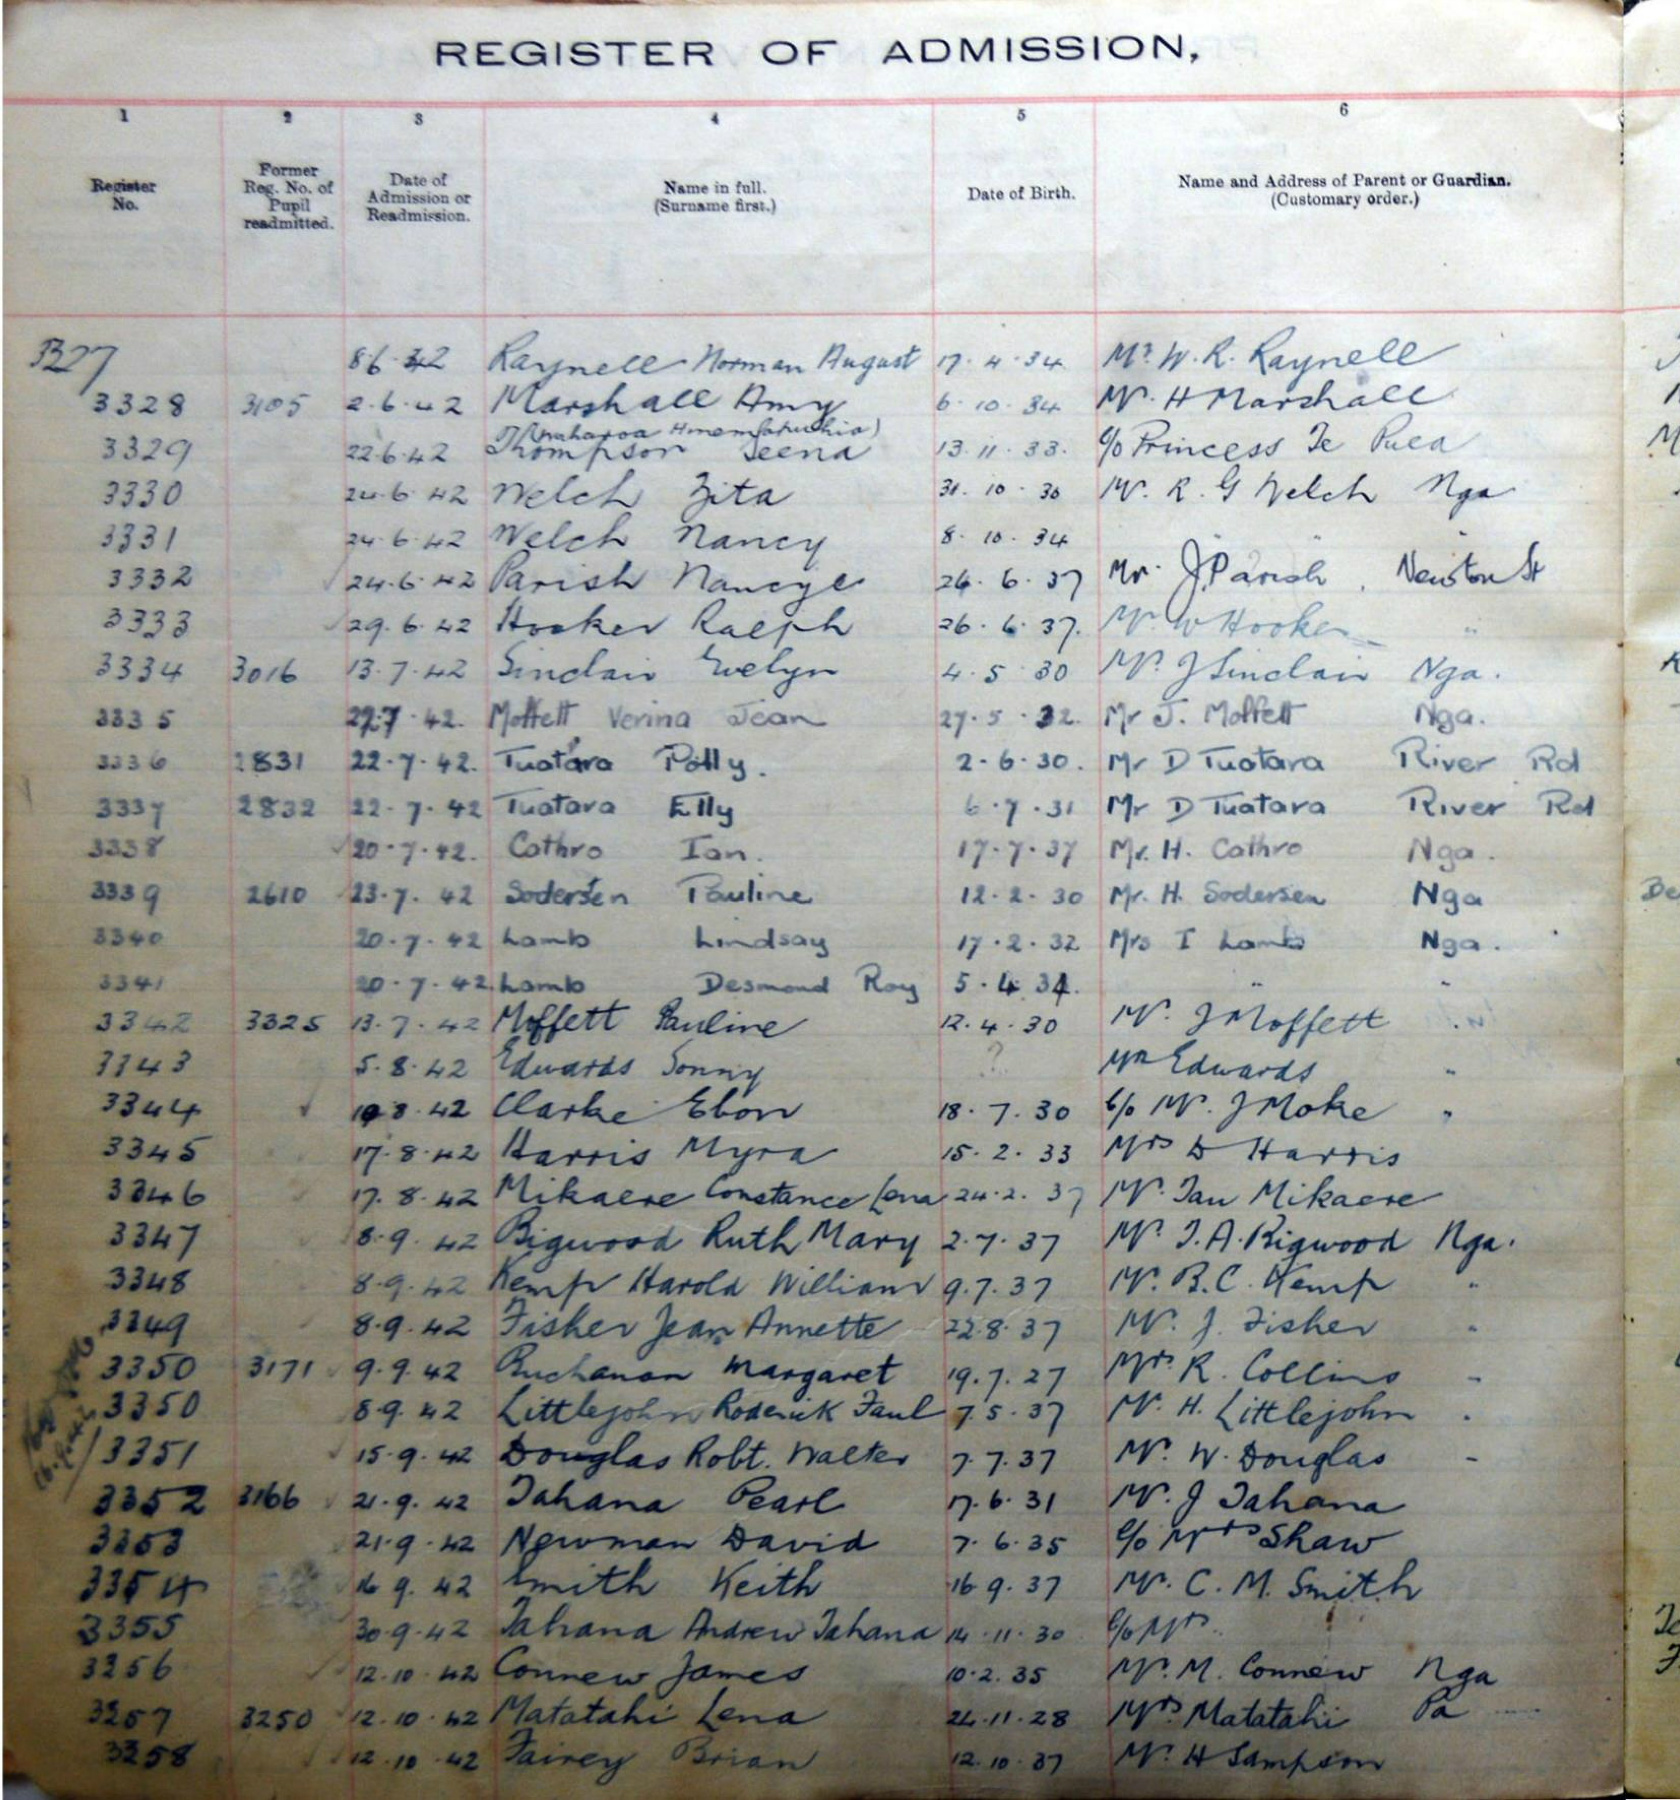 REGISTER OF ADMISSION,
1 2 3 4 5 6
Register No. Former Reg. No. of Pupil readmitted. Date of Admission or Readmission. Name in full. (Surname first.) Date of Birth. Name and Address of Parent or Guardian. (Customary order.)
3327 8.6.42 Raynell Norman August 17.4.34 Mr W. R. Raynell
3328 3105 2.6.42 Marshall Amy 6.10.34 Mr. H Marshall
3329 22.6.42 Thompson Teena 13.11.33. c/o Princess Te Puea
3330 24.6.42 Welch Zita 31.10.30 Mr. R. G Welch Nga
3331 24.6.42 Welch Nancy 8.10.34 " "
3332 24.6.42 Parish Nancye 26.6.37 Mr. J. Parish. Newton St
3333 29.6.42 Hooker Ralph 26.6.37. Mr. W Hooker "
3334 3016 13.7.42 Sinclair Evelyn 4.5.30 Mr. J Sinclair Nga.
3335 22.7.42. Moffett Verina Jean 27.5.32. Mr J. Moffett Nga.
3336 2831 22.7.42. Tuatara Polly. 2.6.30. Mr D Tuatara River Rd
3337 2832 22.7.42 Tuatara Elly 6.7.31 Mr D Tuatara River Rd
3338 20.7.42. Cathro Ian. 17.7.37 Mr. H. Cathro Nga.
3339 2610 23.7.42 Sodersen Pauline 12.2.30 Mr. H. Sodersen Nga
3340 20.7.42 Lamb Lindsay 17.2.32 Mrs I Lamb Nga.
3341 20.7.42. Lamb Desmond Roy 5.4.34. " "
3342 3325 13.7.42 Moffett Pauline 12.4.30 Mr. J Moffett "
3343 5.8.42 Edwards Sonny ? Mr Edwards "
3344 10.8.42 Clarke Ebon 18.7.30 c/o Mr. J Moke "
3345 17.8.42 Harris Myra 15.2.33 Mrs D Harris
3346 17.8.42 Mikaere Constance Lena 24.2.37 Mr. Tau Mikaere
3347 8.9.42 Bigwood Ruth Mary 2.7.37 Mr. T. A. Bigwood Nga.
3348 8.9.42 Kemp Harold William 9.7.37 Mr. B. C. Kemp "
3349 8.9.42 Fisher Jean Annette 22.8.37 Mr. J. Fisher "
3350 3171 9.9.42 Buchanan Margaret 19.7.27 Mrs. R. Collins "
3350 8.9.42 Littlejohn Roderick Paul 7.5.37 Mr. H. Littlejohn "
3351 15.9.42 Douglas Robt. Walter 7.7.37 Mr. W. Douglas "
3352 3166 21.9.42 Tahana Pearl 17.6.31 Mr. J Tahana
3353 21.9.42 Newman David 7.6.35 c/o Mrs Shaw
3354 16.9.42 Smith Keith 16.9.37 Mr. C. M. Smith
3355 30.9.42 Tahana Andrew Tahana 14.11.30 c/o Mrs
3256 12.10.42 Connew James 10.2.35 Mr. M. Connew Nga
3257 3250 12.10.42 Matatahi Lena 24.11.28 Mrs Matatahi Pa
3258 12.10.42 Fairey Brian 12.10.37 Mr. H Sampson